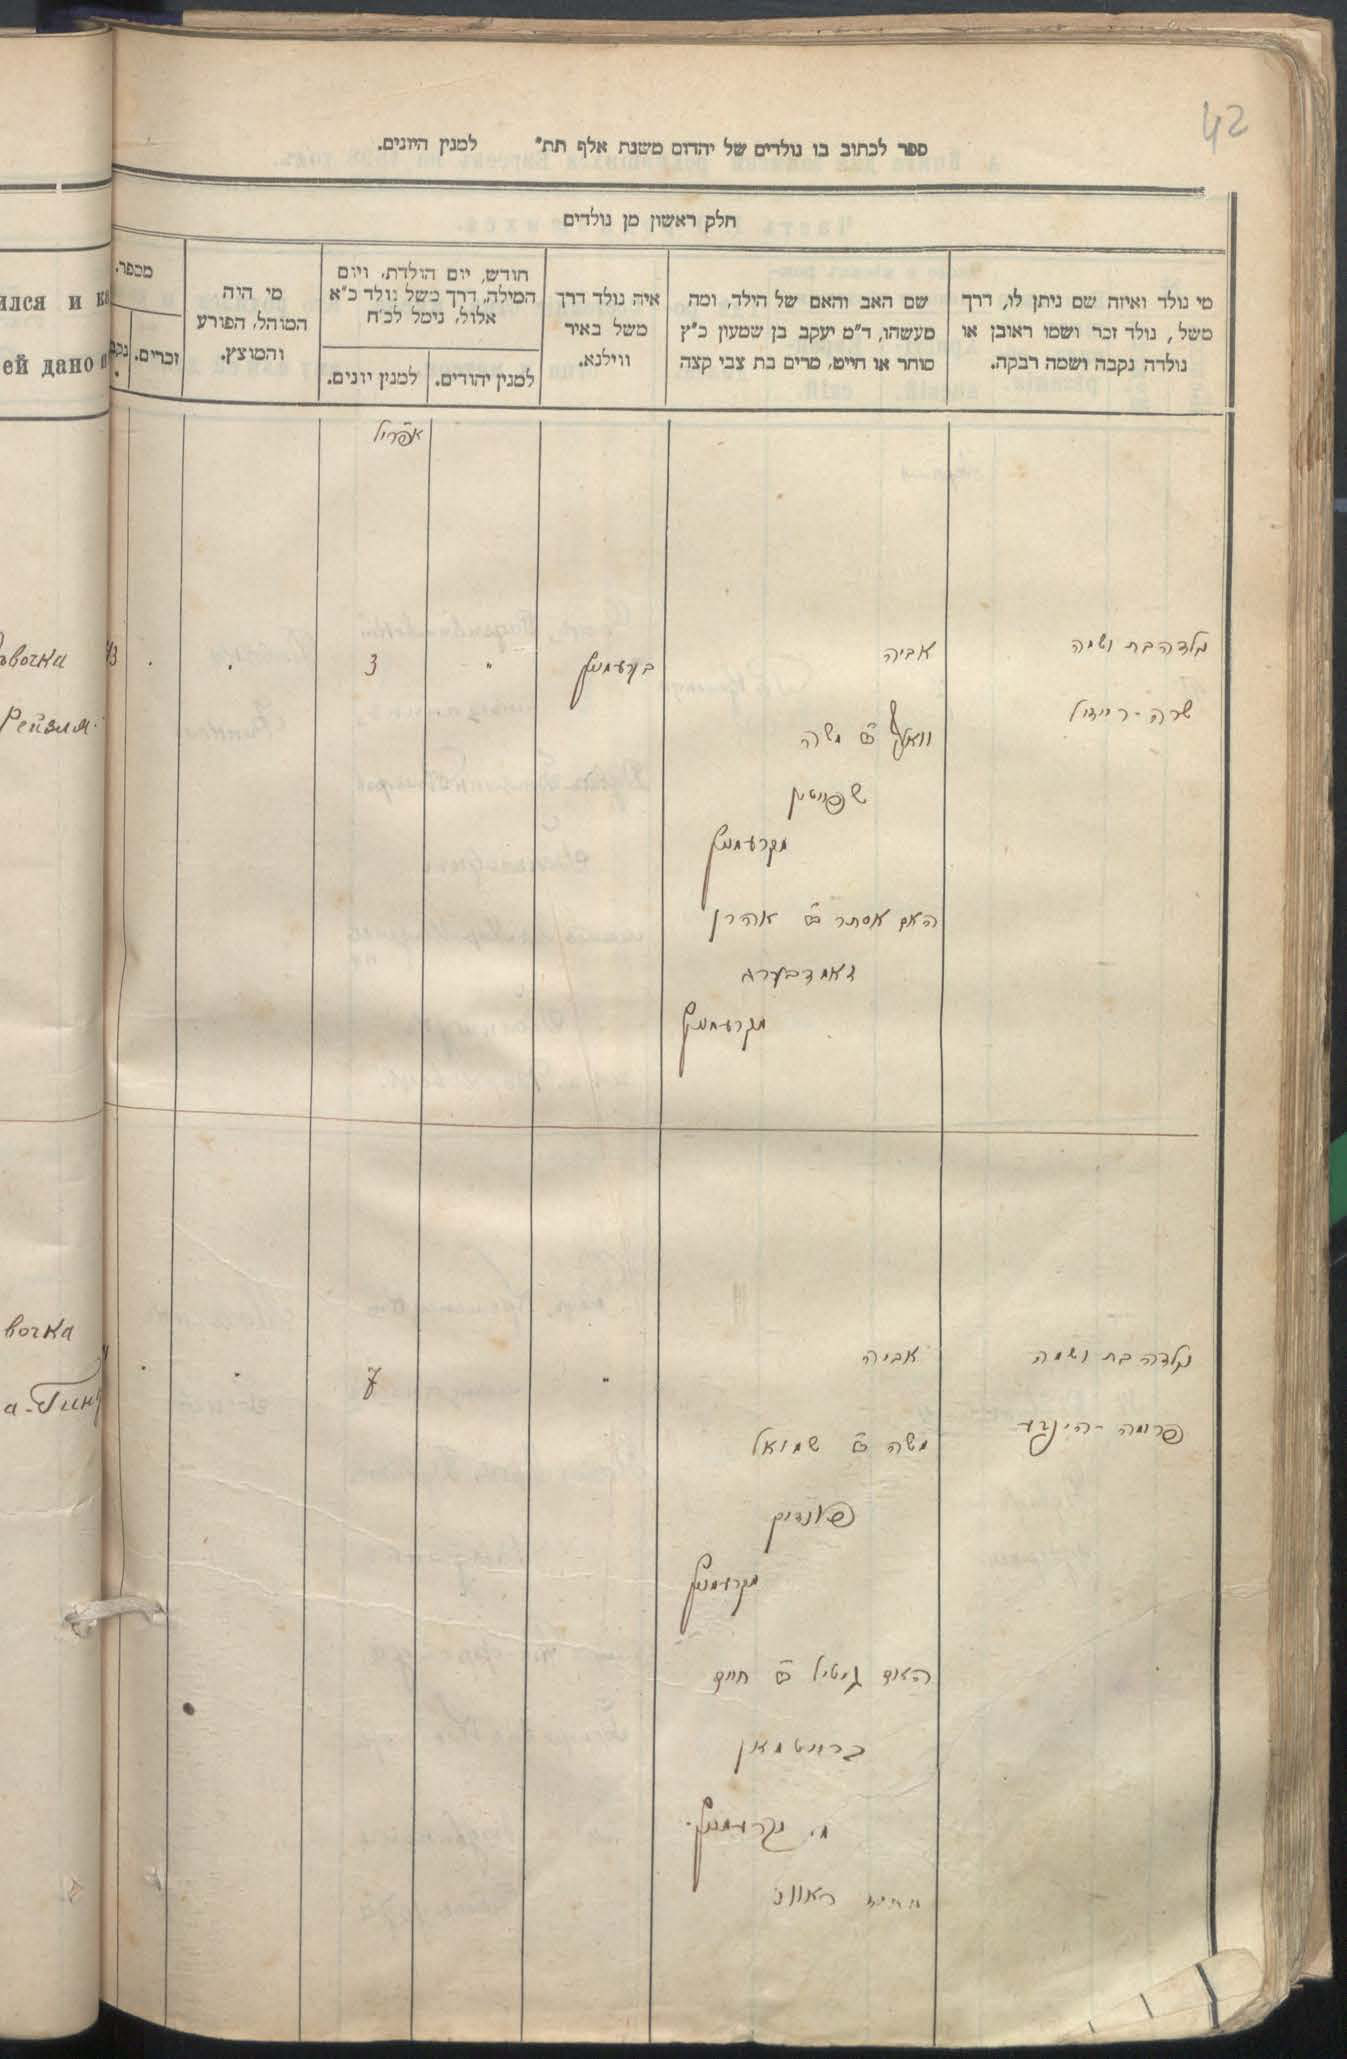 42
ספר לכתוב בו נולדים של יהדום משנת אלף תת״ למנין היונים.
חלק ראשון מן נולדים
מי נולד ואיזה שם ניתן לו, דרך
משל, נולד זכר ושמו ראובן או
נולדה נקבה ושמה רבקה.
שם האב והאם של הילד, ומה
מעשהו, ד״מ יעקב בן שמעון כ״ץ
סוחר או חייט, מרים בת צבי קצה
איה נולד דרך
משל באיר
ווילנא.
חודש, יום הולדת, ויום
המילה, דרך משל נולד כ״א
אלול, נימל לכ״ח
למנין יהודים.
למנין יונים.
מי היה
המוהל, הפורע
והמוצץ.
מספר.
זכרים.
אפריל
נולדה בת ושמה
שרה - רייזיל
אביה
וואלף ב״ר משה
מקרעמניץ
האם אסתר ב״ר אהרן
מקרעמניץ
בקרעמניץ
3
נולדה בת ושמה
פרומה - הינדע
אביה
משה ב״ר שמואל
מקרעמניץ
האם גיטיל ב״ר חיים
ברויטמאן
7
ился и к
ей дано и
вочка
Рейзля
вочка